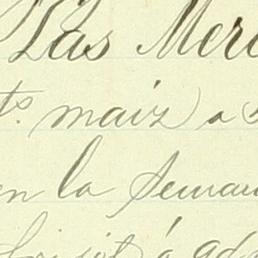 Las Mer
ts. maiz) a
en la seman
á